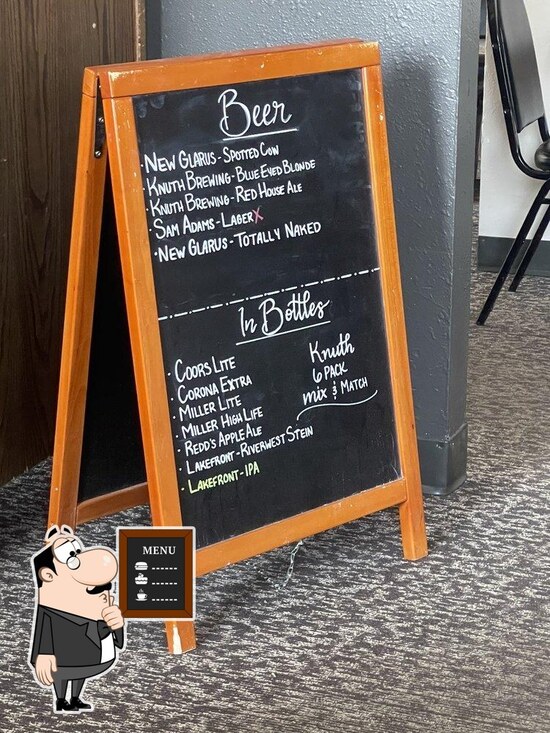 Beer
·New Glarus - Spotted Cow
·Knuth Brewing - Blue Eyed Blonde
·Knuth Brewing - Red House Ale
·Sam Adams - Lager X
·New Glarus - Totally Naked
In Bottles
·Coors Lite
·Corona Extra
·Miller Lite
·Miller High Life
·Redd's Apple Ale
·Lakefront - Riverwest Stein
·Lakefront - IPA
Knuth
6 Pack
mix & Match
MENU